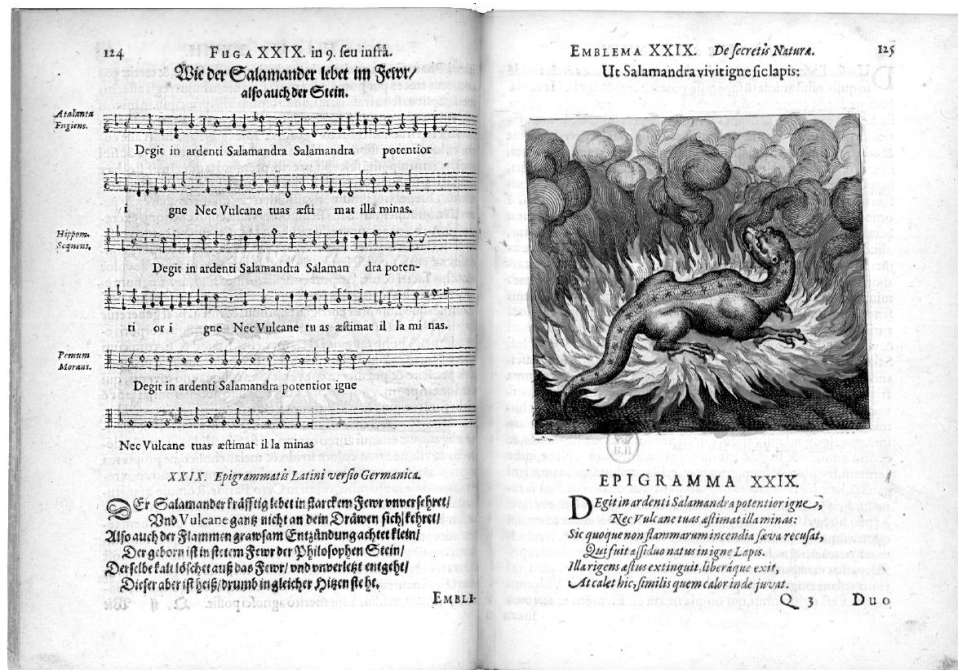 124
FUGA XXIX. in 9. seu infrà.
Wie der Salamander lebet im Fewr/
also auch der Stein.
Atalanta
Fugiens.
Degit in ardenti Salamandra Salamandra potentior
i gne Nec Vulcane tuas æsti mat illa minas.
Hippom.
Sequens.
Degit in ardenti Salamandra Salaman dra poten-
ti or i gne Nec Vulcane tu as æstimat il la mi nas.
Pomum
Morans.
Degit in ardenti Salamandra potentior igne
Nec Vulcane tuas æstimat il la minas
XXIX. Epigrammatis Latini versio Germanica.
DEr Salamander kräfftig lebet in starckem Fewr unversehret/
Und Vulcane gantz nicht an dein Dräwen sich kehret/
Also auch der Flammen grawsam Entzündung achtet klein/
Der geborn ist in stetem Fewr der Philosophen Stein/
Derselbe kalt löschet auß das Fewr/ und unverletzt entgeht/
Dieser aber ist heiß/ drumb in gleicher Hitzen stehe,
EMBLE-
EMBLEMA XXIX. De secretis Naturæ. 125
Ut Salamandra vivit igne sic lapis:
EPIGRAMMA XXIX.
DEgit in ardenti Salamandra potentior igne,
Nec Vulcane tuas æstimat illa minas:
Sic quoque non flammarum incendia sæva recusat,
Qui fuit assiduo natus in igne Lapis.
Illa rigens æstus extinguit, liberáque exit,
At calet hic, similis quem calor inde juvat.
Q 3 Duo